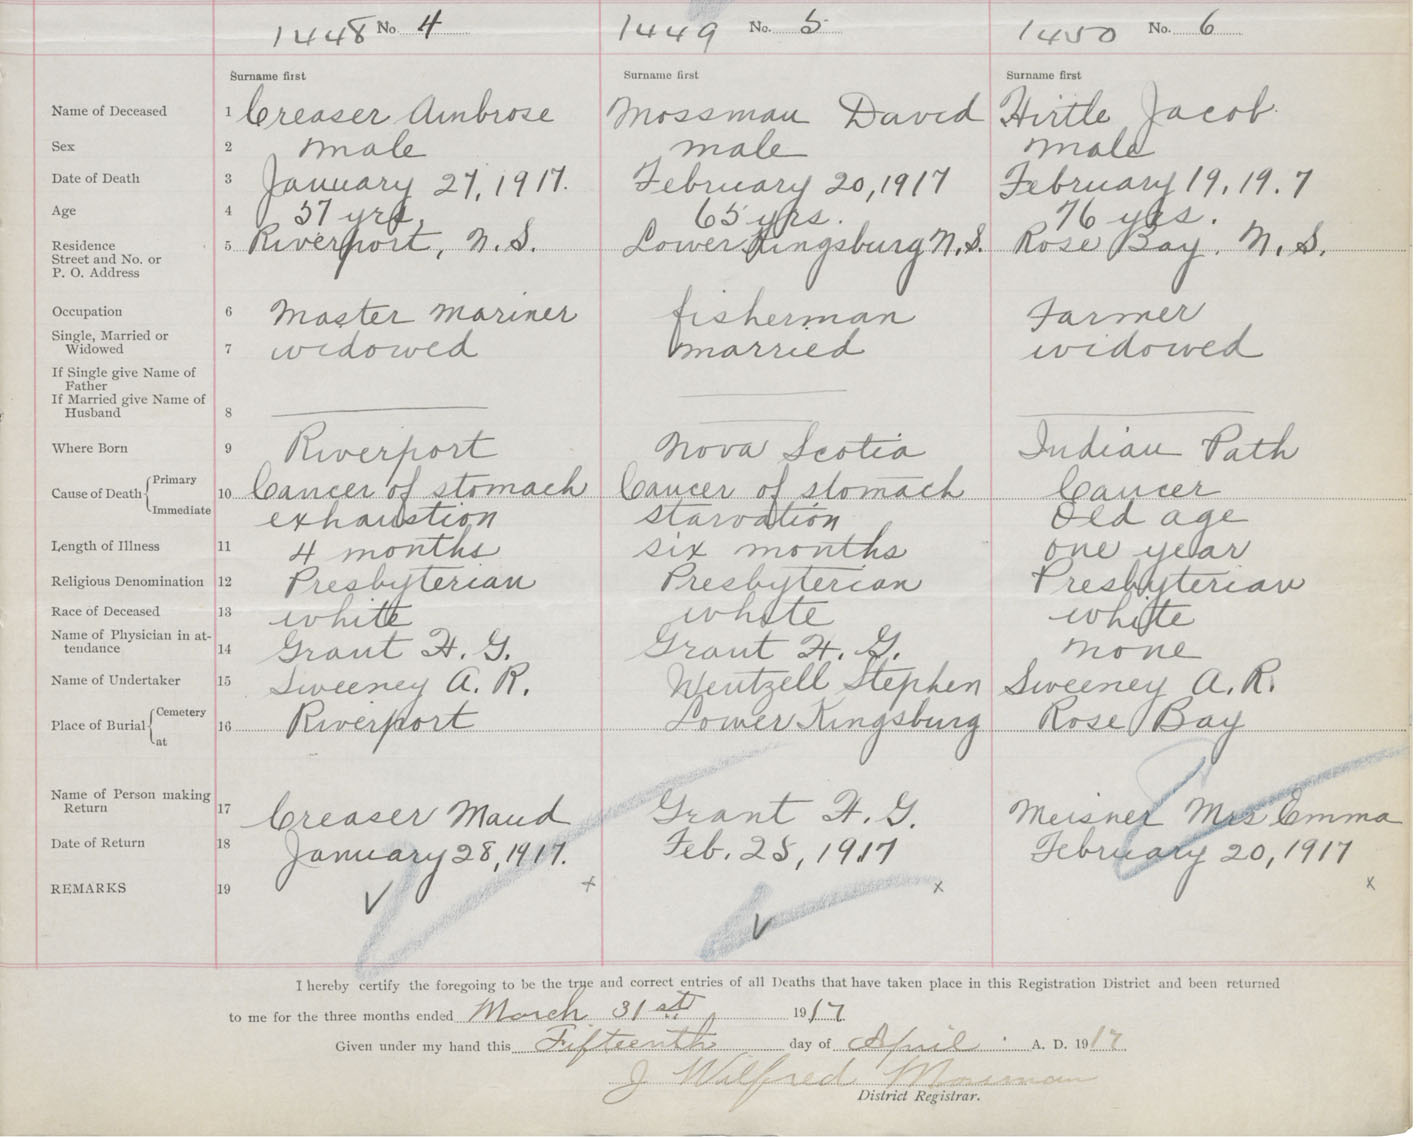 1448 No. 4 1449 No. 5 1450 No. 6
Surname first Surname first Surname first
Name of Deceased 1 Creaser Ambrose Mossman David Hirtle Jacob
Sex 2 male male male
Date of Death 3 January 27, 1917. February 20, 1917 February 19, 19.7
Age 4 57 yrs. 65 yrs. 76 yrs.
Residence 5 Riverport, N.S. Lower Kingsburg N.S. Rose Bay. N.S.
Street and No. or
P. O. Address
Occupation 6 Master Mariner fisherman Farmer
Single, Married or
Widowed 7 widowed married widowed
If Single give Name of
Father
If Married give Name of
Husband 8
Where Born 9 Riverport Nova Scotia Indian Path
Cause of Death Primary 10 Cancer of stomach Cancer of stomach Cancer
Immediate exhaustion starvation Old age
Length of Illness 11 4 months six months one year
Religious Denomination 12 Presbyterian Presbyterian Presbyterian
Race of Deceased 13 white white white
Name of Physician in at-
tendance 14 Grant H. G. Grant H. G. none
Name of Undertaker 15 Sweeney A. R. Wentzell Stephen Sweeney A. R.
Place of Burial Cemetery at 16 Riverport Lower Kingsburg Rose Bay
Name of Person making
Return 17 Creaser Maud Grant H. G. Meisner Mrs Emma
Date of Return 18 January 28, 1917. Feb. 25, 1917 February 20, 1917
REMARKS 19 x x x
I hereby certify the foregoing to be the true and correct entries of all Deaths that have taken place in this Registration District and been returned
to me for the three months ended March 31st 1917
Given under my hand this Fifteenth day of April A. D. 1917
J Wilfred Mosman
District Registrar.